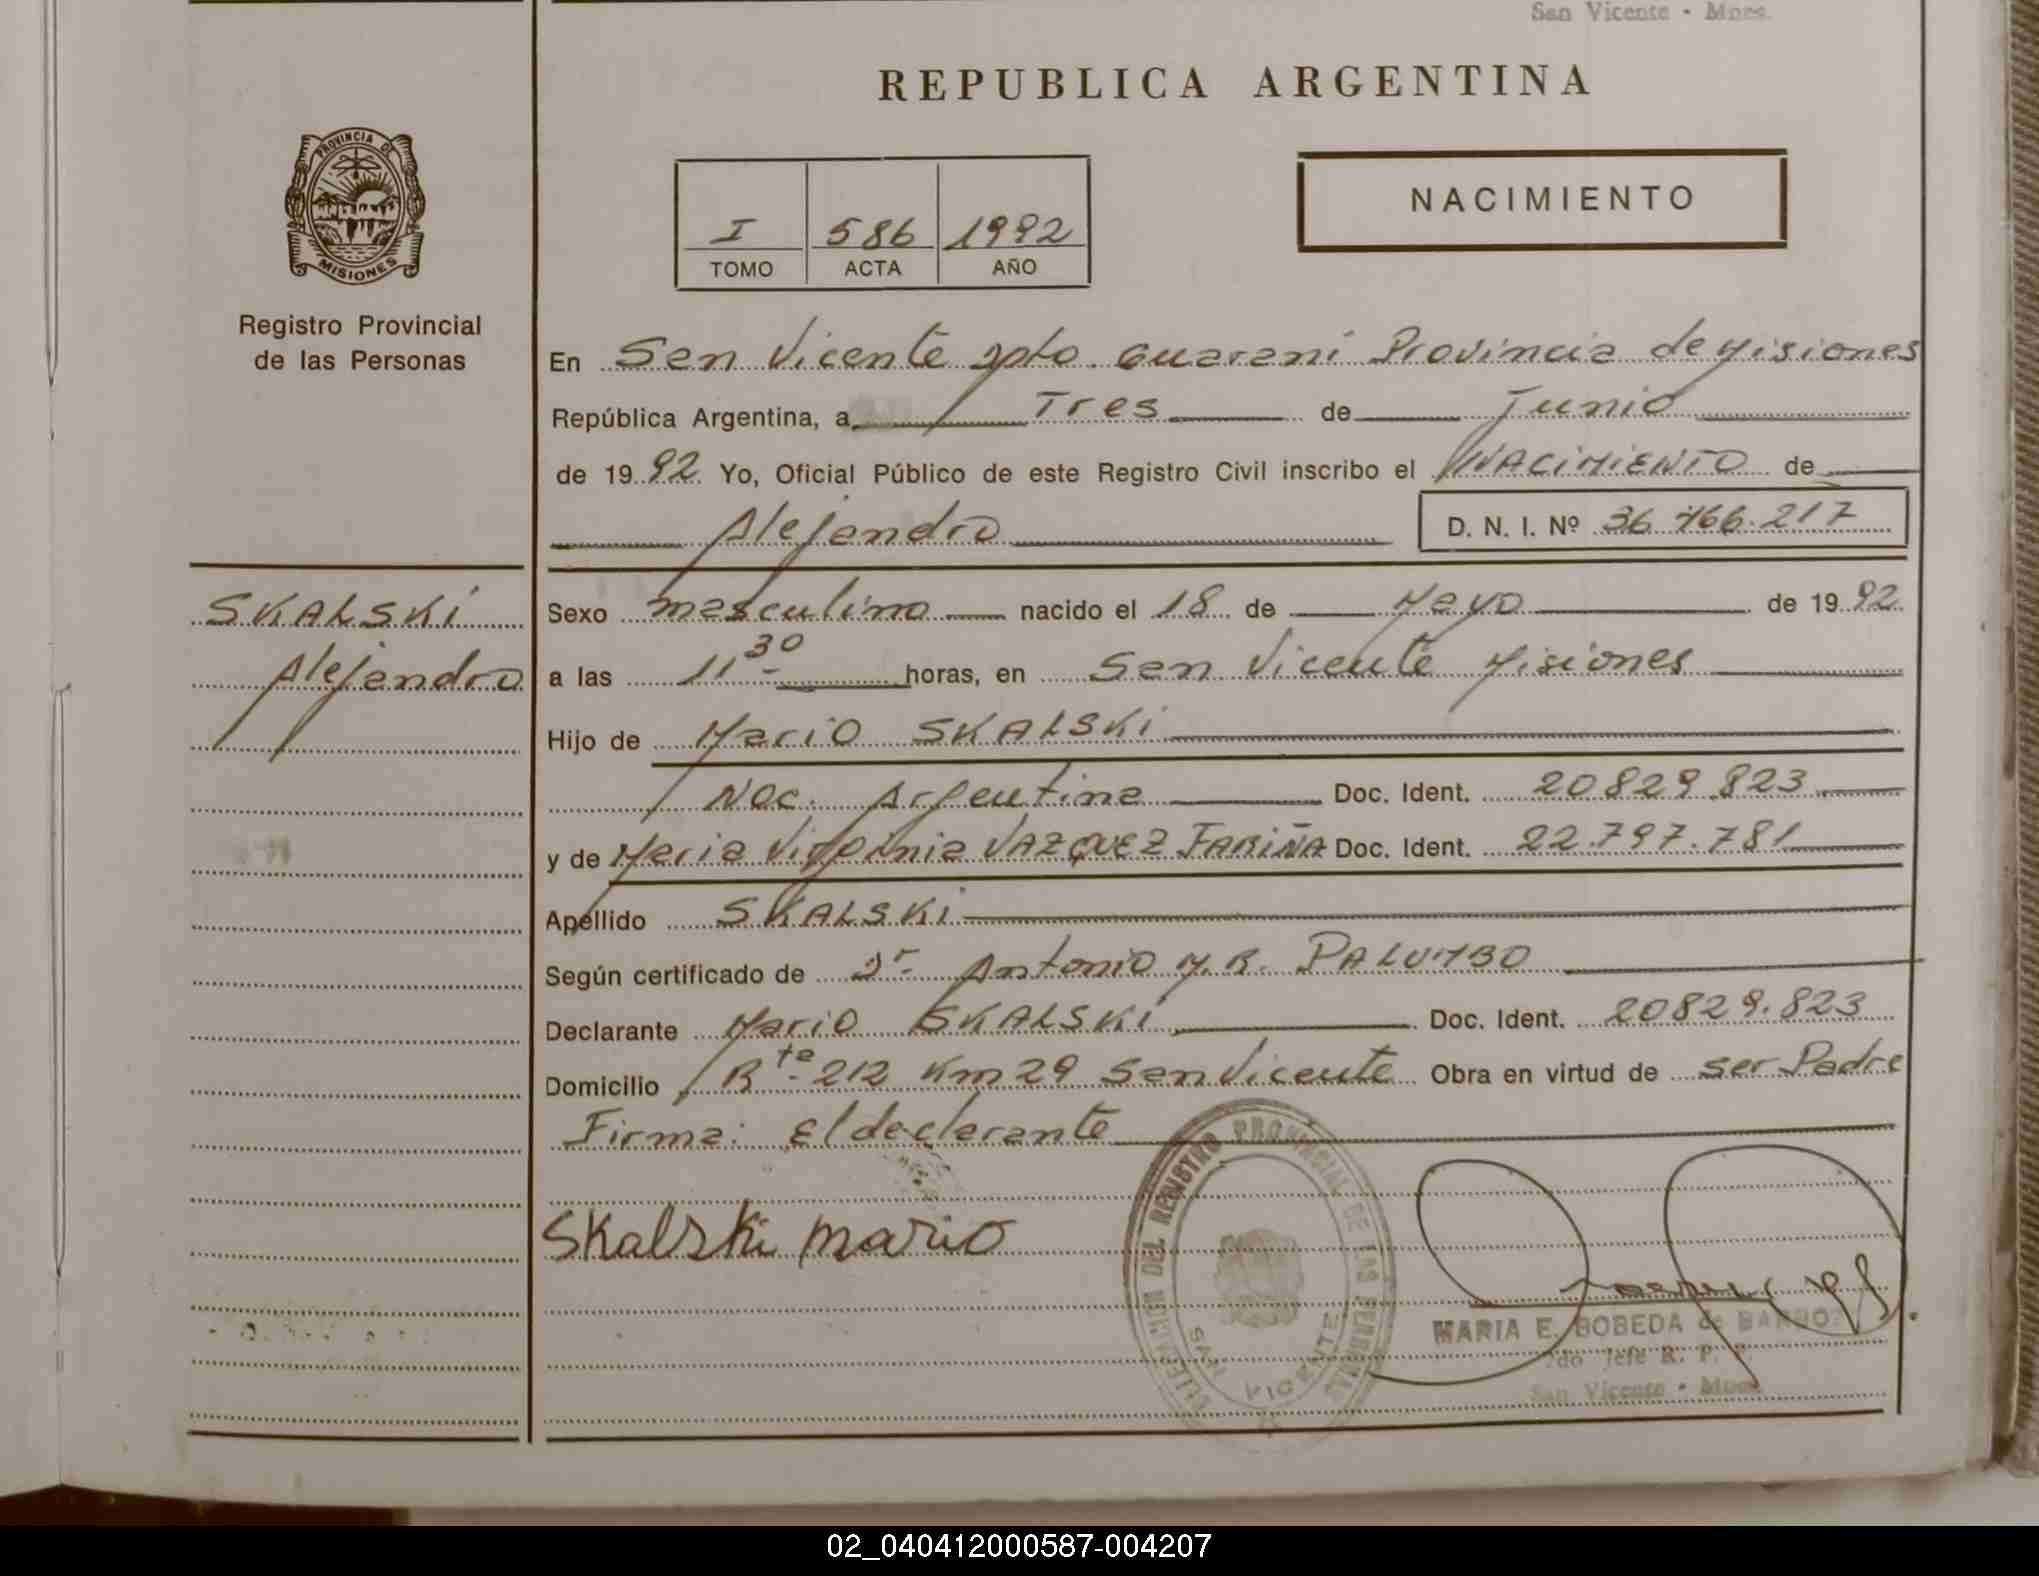 San Vicente - Mnes.
REPUBLICA ARGENTINA
PROVINCIA DE
MISIONES
Registro Provincial
de las Personas
I 586 1992
TOMO ACTA AÑO
NACIMIENTO
En San Vicente Dpto. Guaraní Provincia de Misiones
República Argentina, a Tres de Junio
de 1992 Yo, Oficial Público de este Registro Civil inscribo el NACIMIENTO de
Alejandro D. N. I. Nº 36.766.217
SKALSKI
Alejandro
Sexo masculino nacido el 18 de Mayo de 1992
a las 11 30 horas, en San Vicente Misiones
Hijo de Mario SKALSKI
Nac. Argentina Doc. Ident. 20829.823
y de Maria Virginia VAZQUEZ FARIÑA Doc. Ident. 22.797.781
Apellido SKALSKI
Según certificado de Dr. Antonio M.R. PALUMBO
Declarante Mario SKALSKI Doc. Ident. 20829.823
Domicilio Rta. 212 Km 29 San Vicente Obra en virtud de ser Padre
Firma: El declarante
Skalski mario
DEL REGISTRO PROVINCIAL DE LAS PERSONAS
SAN VICENTE
MARIA E. BOBEDA de
2do Jefe R. P. P.
San Vicente - Mnes.
02_040412000587-004207